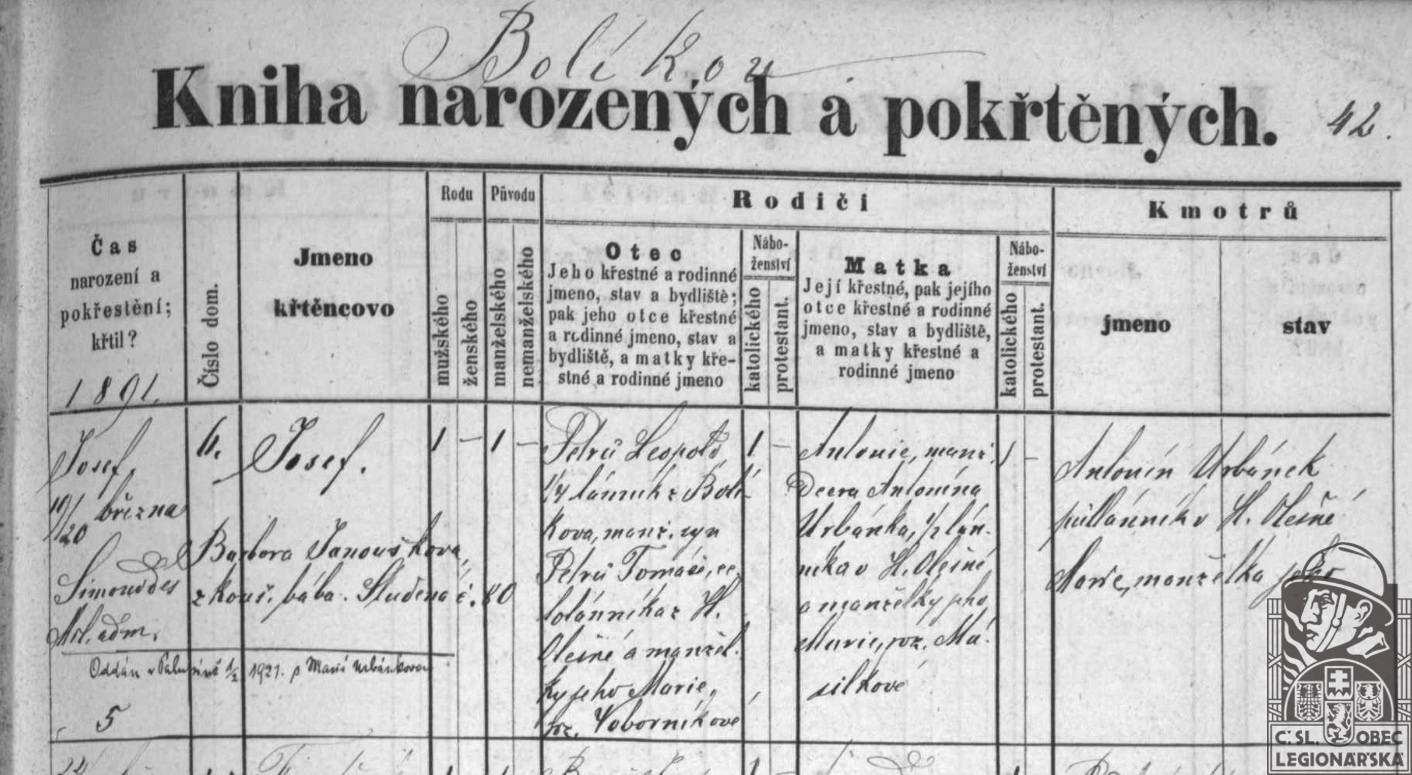 Bolíkov
Kniha narozených a pokřtěných.
42.
Čas
narození a
pokřestění;
křtil?
1891.
Číslo dom.
Jmeno
křtěncovo
Rodu
mužského
ženského
Původu
manželského
nemanželského
Rodiči
Otec
Jeho křestné a rodinné
jmeno, stav a bydliště;
pak jeho otce křestné
a rodinné jmeno, stav a
bydliště, a matky kře-
stné a rodinné jmeno
Nábo-
ženství
katolického
protestant.
Matka
Její křestné, pak jejího
otce křestné a rodinné
jmeno, stav a bydliště,
a matky křestné a
rodinné jmeno
Nábo-
ženství
katolického
protestant.
Kmotrů
jmeno
stav
Josef,
19/20 března
Šimon
adm.
6.
Josef.
Barbora Janouškova,
zkouš. bába. Studená č. 80
1 –
1 –
Petrů Leopold
1/4 lánník z Bolí
kova, manž. syn
Petrů Tomáše, ce
lolánníka z H.
Olešné a manžel
ky jeho Marie,
roz. Voborníkové
1 –
Antonie, manž.
dcera Antonína
Urbánka, 1/2 lán
níka v H. Olešné,
a manželky jeho
Marie, roz. Ma
silkové
1 –
Antonín Urbánek
půllánník v H. Olešné
Marie, manželka jeho
Oddán v 1921. s Marií Urbánkovou
5
Č:SL. OBEC
LEGIONÁŘSKÁ